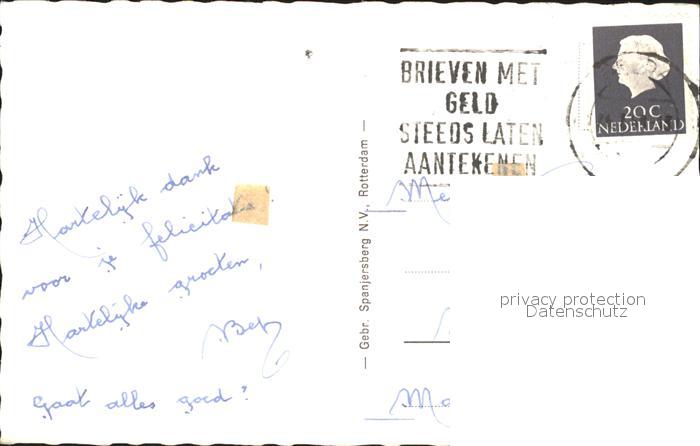 BRIEVEN MET
GELD
STEEDS LATEN
AANTEKENEN
20 C
NEDERLAND
Hartelijk dank
voor je felicitatie.
Hartelijke groeten,
Bep
Gaat alles goed?
— Gebr. Spanjersberg N.V., Rotterdam —
Me
Ma
privacy protection
Datenschutz